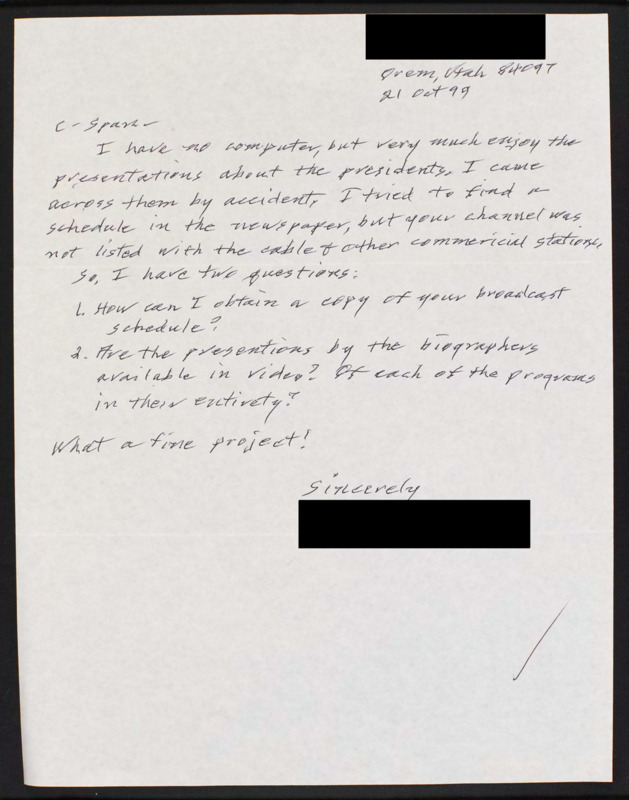 Orem, Utah 84097
21 Oct 99
C-Span-
I have no computer, but very much enjoy the
presentations about the presidents. I came
across them by accident. I tried to find a
schedule in the newspaper, but your channel was
not listed with the cable & other commericial stations.
So, I have two questions:
1. How can I obtain a copy of your broadcast
schedule?
2. Are the presentions by the biographers
available in video? Of each of the programs
in their entirety?
What a fine project!
Sincerely